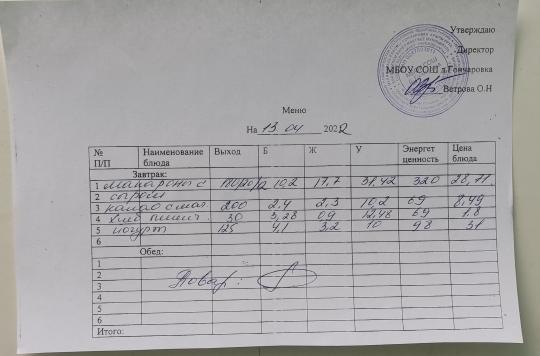 Утверждаю
Директор
МБОУ СОШ д.Гончаровка
Ветрова О.Н
Меню
На 13.04 2022
№ П/П Наименование блюда Выход Б Ж У Энергет ценность Цена блюда
Завтрак:
1 макароны с 10,2 11,7 31,42 320 28,71
2 сыром
3 какао с мол. 200 2,4 2,3 10,2 69 8,49
4 Хлеб пшенич. 30 3,28 09 12,48 69 1.8
5 йогурт 125 4,1 3,2 10 98 31
6
Обед:
1
2
3 Повар:
4
5
6
Итого: